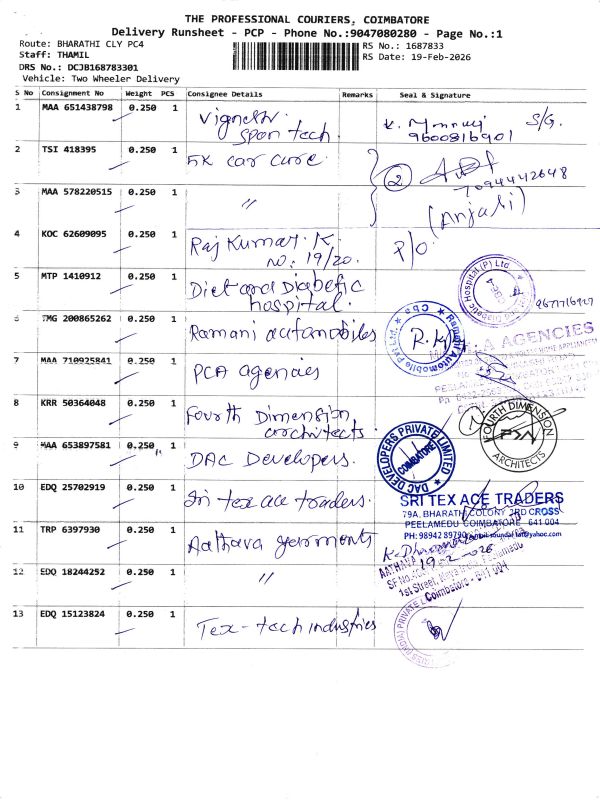 THE PROFESSIONAL COURIERS, COIMBATORE
Delivery Runsheet - PCP - Phone No.:9047080280 - Page No.:1
Route: BHARATHI CLY PC4
RS No.: 1687833
Staff: THAMIL
RS Date: 19-Feb-2026
DRS No.: DCJB168783301
Vehicle: Two Wheeler Delivery
S No Consignment No Weight PCS Consignee Details Remarks Seal & Signature
1 MAA 651438798 0.250 1 Vignesh
Span tech. 9600816901 S/G.
2 TSI 418395 0.250 1 5K car care 2
7094442648
3 MAA 578220515 0.250 1 〃 (Anjali)
4 KOC 62609095 0.250 1 Raj Kumar. K. P/O
NO: 19/20.
5 MTP 1410912 0.250 1 Diet and Diabetic
hospital. Diabetic Hospital (P) Ltd.
6 TMG 200865262 0.250 1 Ramani automobiles
Ramani Automobile Pvt Ltd. Cbe
AGENCIES
7 MAA 710925841 0.250 1 PCA agencies
8 KRR 50364048 0.250 1 Fourth Dimension
architects.
FOURTH DIMENSION ARCHITECTS
9 MAA 653897581 0.250 1 DAC Developers.
DAC DEVELOPERS PRIVATE LIMITED COIMBATORE
10 EDQ 25702919 0.250 1 Sri tex ace traders.
SRI TEX ACE TRADERS
79A, BHARATHI COLONY 3RD CROSS
PEELAMEDU COIMBATORE 641 004
PH: 98942 89790
11 TRP 6397930 0.250 1 Aathava garments
19-2-2026
AATHAVA
1st Street,
Coimbatore - 641 004
12 EDQ 18244252 0.250 1 〃
13 EDQ 15123824 0.250 1 Tex-tech industries
(INDIA) PRIVATE